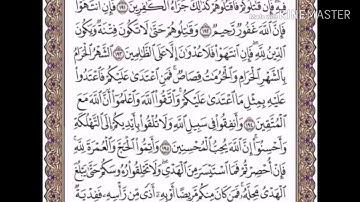 KINEMASTER
فِيهِ فَإِن قَٰتَلُوكُمْ فَٱقْتُلُوهُمْ كَذَٰلِكَ جَزَآءُ ٱلْكَٰفِرِينَ ١٩١ فَإِنِ ٱنتَهَوْا۟
فَإِنَّ ٱللَّهَ غَفُورٌ رَّحِيمٌ ١٩٢ وَقَٰتِلُوهُمْ حَتَّىٰ لَا تَكُونَ فِتْنَةٌ وَيَكُونَ
ٱلدِّينُ لِلَّهِ فَإِنِ ٱنتَهَوْا۟ فَلَا عُدْوَٰنَ إِلَّا عَلَى ٱلظَّٰلِمِينَ ١٩٣
بِٱلشَّهْرِ ٱلْحَرَامِ وَٱلْحُرُمَٰتُ قِصَاصٌ فَمَنِ ٱعْتَدَىٰ عَلَيْكُمْ فَٱعْتَدُوا۟
عَلَيْهِ بِمِثْلِ مَا ٱعْتَدَىٰ عَلَيْكُمْ وَٱتَّقُوا۟ ٱللَّهَ وَٱعْلَمُوٓا۟ أَنَّ ٱللَّهَ مَعَ
ٱلْمُتَّقِينَ ١٩٤ وَأَنفِقُوا۟ فِى سَبِيلِ ٱللَّهِ وَلَا تُلْقُوا۟ بِأَيْدِيكُمْ إِلَى ٱلتَّهْلُكَةِ
وَأَحْسِنُوٓا۟ إِنَّ ٱللَّهَ يُحِبُّ ٱلْمُحْسِنِينَ ١٩٥ وَأَتِمُّوا۟ ٱلْحَجَّ وَٱلْعُمْرَةَ لِلَّهِ
فَإِنْ أُحْصِرْتُمْ فَمَا ٱسْتَيْسَرَ مِنَ ٱلْهَدْىِ وَلَا تَحْلِقُوا۟ رُءُوسَكُمْ حَتَّىٰ يَبْلُغَ
ٱلْهَدْىُ مَحِلَّهُۥ فَمَن كَانَ مِنكُم مَّرِيضًا أَوْ بِهِۦٓ أَذًى مِّن رَّأْسِهِۦ فَفِدْيَةٌ